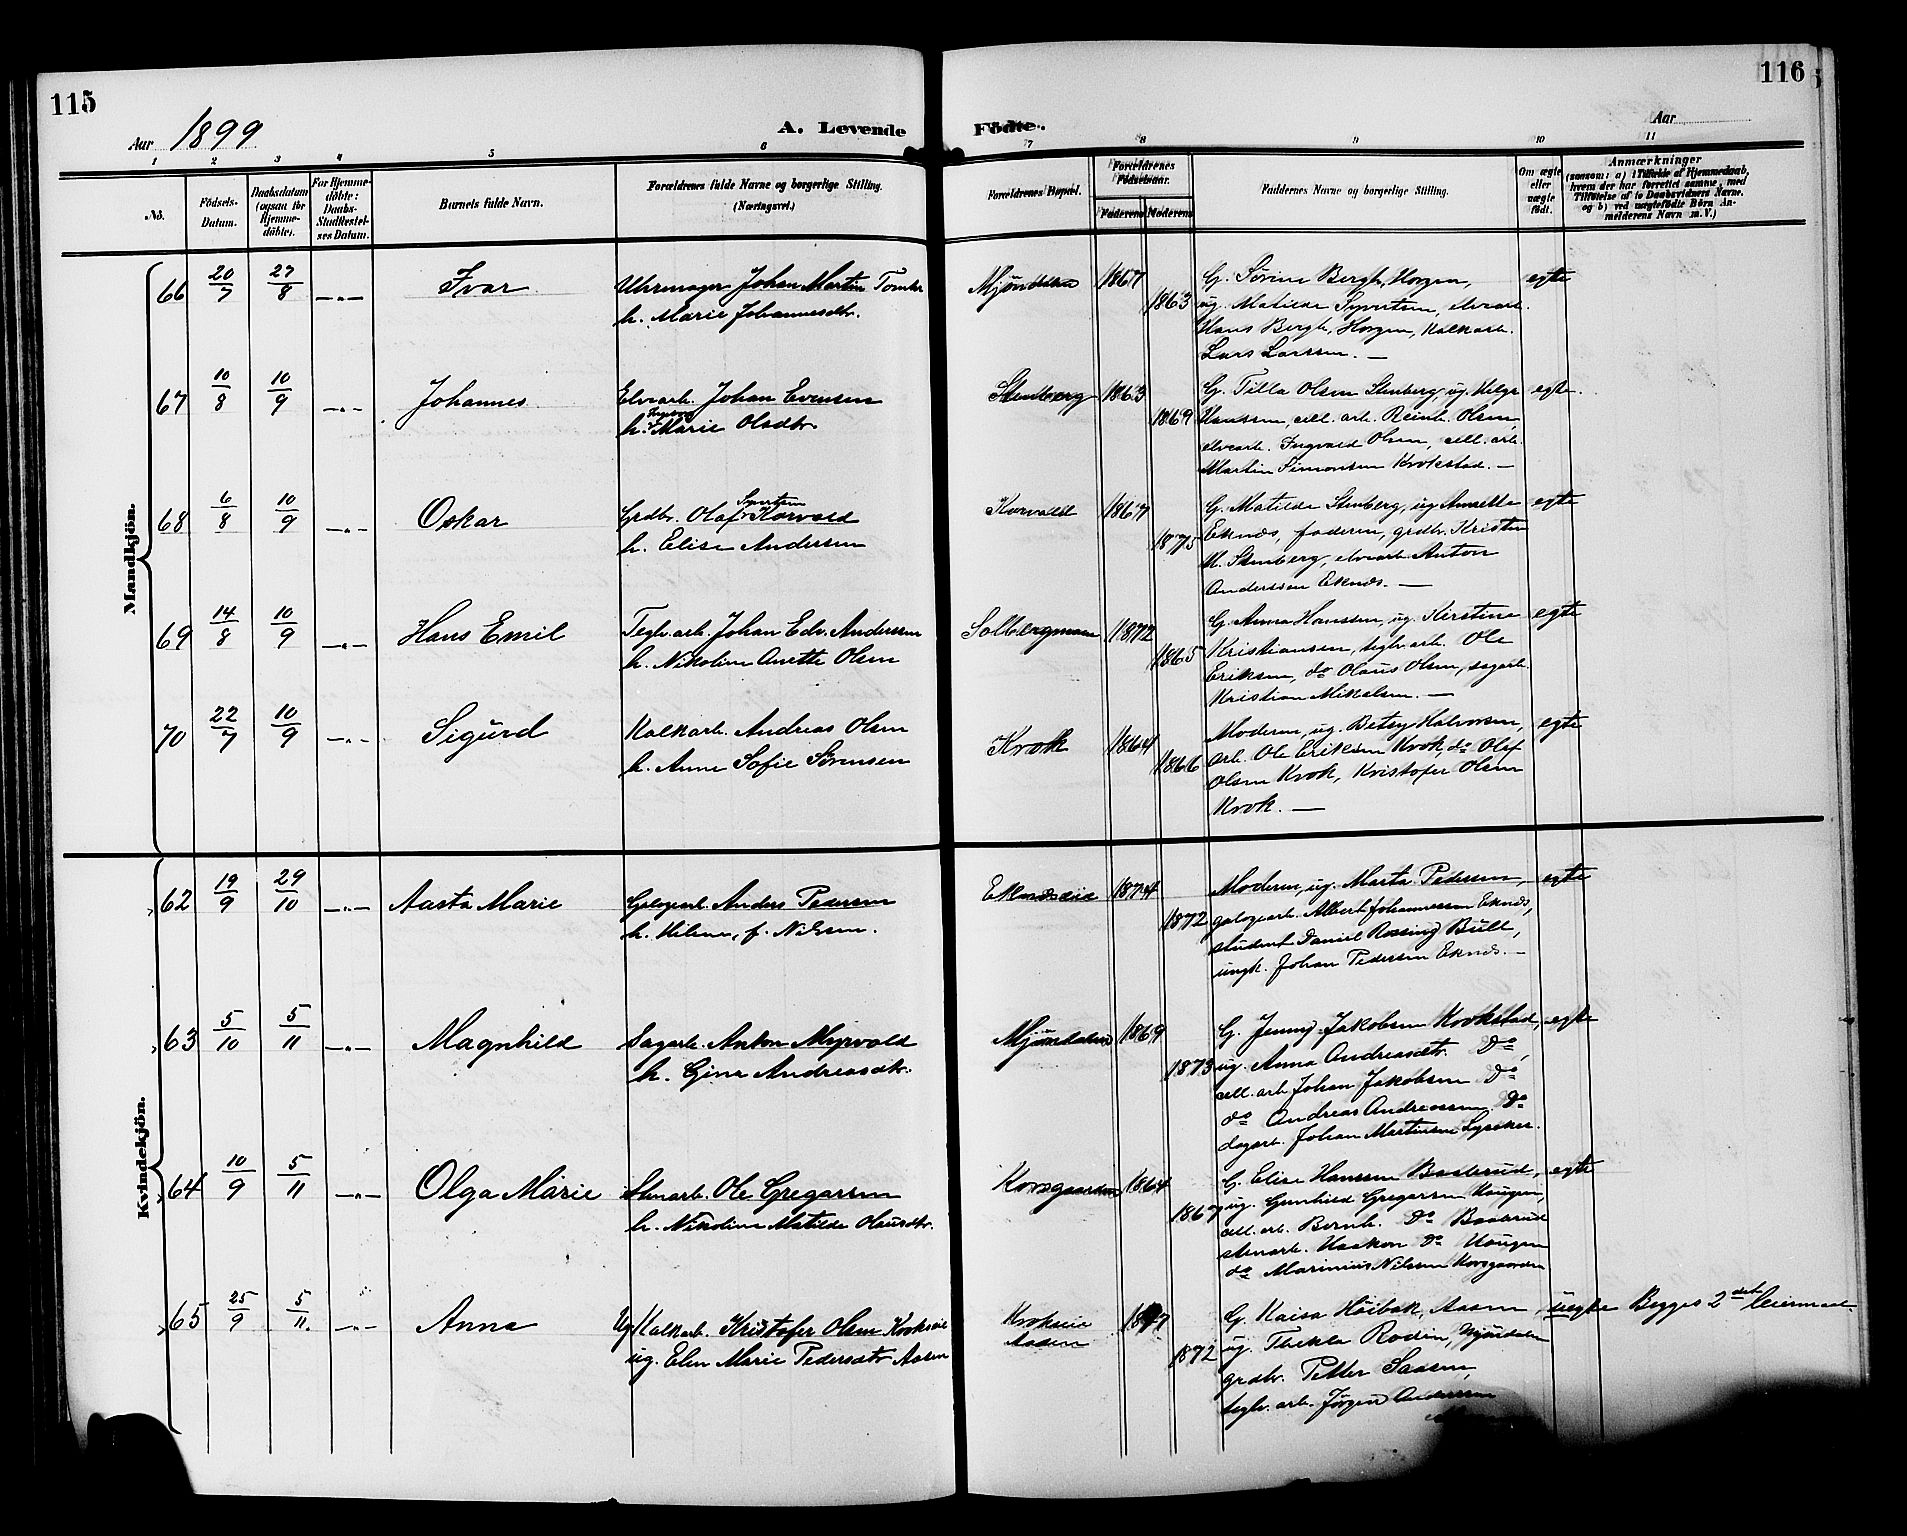 115
116
Aar 1899
A. Levende Födte.
Aar
1 2 3 4 5 6 7 8 9 10 11
No.
Födsels-Datum.
Daabsdatum (ogsaa for Hjemme-döbte).
For Hjemme-döbte: Daabs-Stadfæstelses Datum.
Barnets fulde Navn.
Forældrenes fulde Navne og borgerlige Stilling. (Næringsvei.)
Forældrenes Bopæl.
Forældrenes Födselsaar.
Faderens Moderens
Faddernes Navne og borgerlige Stilling.
Om ægte eller uægte födt.
Anmærkninger
Mandkjön.
66 20/7 27/8 —"— Ivar
Uhrmager Johan Martin
h. Marie Johannesdtr.
Mjöndalen 1867 1863
G. Sörine Bergh, Horgen,
ug. Matilde Syvertsen, elvearb.
Hans Bergh, Horgen, Kalkarb.
Lars Larssen. —
egte
67 10/8 10/9 —"— Johannes
Elvearb. Johan Evensen
h. Marie Olsdtr.
Stenberg 1863 1869
G. Tilla Olsen Stenberg, ug. Helga
Hanssen, cell. arb. Reinh. Olsen,
elvearb. Ingvald Olsen, cell. arb.
Martin Simonsen Krokstad. —
egte.
68 6/8 10/9 —"— Oskar
Grdbr. Olaf Syvertsen Korvald
h. Elise Andersen
Korvald 1867 1875
G. Matilde Stenberg, ug. Annette
Eknæs, faderen, grdbr. Kristen
M. Stenberg, elvearb. Anton
Anderssen Eknæs. —
egte
69 14/8 10/9 —"— Hans Emil
Teglv.arb. Johan Edv. Anderssen
h. Nikoline Anette Olsen
Solbergmoen 1872 1865
G. Anna Hanssen, ug. Kirstine
Kristiansen, teglv. arb. Ole
Eriksen, do Olaus Olsen, sagarb.
Kristian Mikelsen. —
egte
70 22/7 10/9 —"— Sigurd
Kalkarb. Andreas Olsen
h. Anne Sofie Sörensen
Krok 1864 1866
Moderen, ug. Betsy Halvorsen,
arb. Ole Eriksen Krok, do Olaf
Olsen Krok, Kristofer Olsen
Krok. —
egte
Kvindekjön.
62 19/9 29/10 —"— Aasta Marie
Anders Pedersen
h. Helene, f. Nilsen.
Eknæseie 1874 1872
Moderen, ug. Marta Pedersen,
Albert Johannessen Eknæs,
student Daniel Rossing Bull,
ungk. Johan Pedersen Eknæs. —
egte
63 5/10 5/11 —"— Magnhild
Sagarb. Anton Myrvold
h. Gina Andreasdtr.
Mjöndalen 1869 1873
G. Jenny Jakobsen Krokstad,
ug. Anna Andreasdtr. Do,
cell. arb. Johan Jakobsen Do
do Andreas Andreassen Do
dagarb. Johan Martinsen Lysaker.
egte
64 10/9 5/11 —"— Olga Marie
Stenarb. Ole Gregersen
h. Nikoline Matilde Olausdtr.
Korsgaarden 1864 1867
G. Elise Hanssen Basberud,
ug. Gunhild Gregersen Haugen,
cell. arb. Bernh. Do Basberud
stenarb. Haakon Do Haugen
do Marinius Nilssen Korsgaarden
egte
65 25/9 5/11 —"— Anna
Ug. Kalkarb. Kristofer Olsen Krokseie
ug. Elen Marie Pedersdtr Aasen
Krokseie
Aasen
1872
G. Kaisa Höibak, Aasen,
ug. Thekla Rodin, Mjöndalen
grdbr. Petter Saasen,
teglv. arb. Jörgen Anderssen
uegte Begges 2det leiermaal.